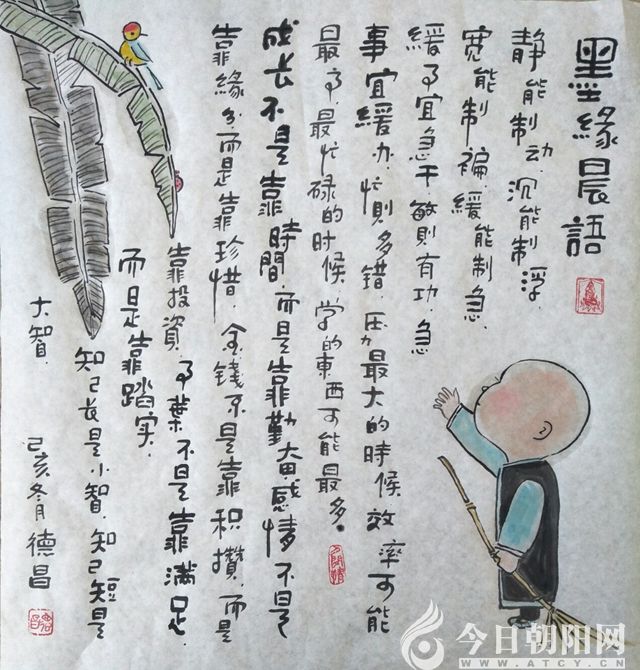 墨緣晨語
静能制动，沉能制浮，
宽能制褊，緩能制急，
緩事宜急干，敏則有功，急
事宜緩办，忙則多错，压力最大的時候效率可能
最高，最忙碌的时候，学的東西可能最多。
成长不是靠時間，而是靠勤奋感情不是
靠緣分，而是靠珍惜，金钱不是靠积攒，而是
靠投資，事業不是靠满足，
而是靠踏实，
知己长是小智，知己短是
大智，
己亥冬月德昌
今日朝阳网
WWW.ATCYY.CN